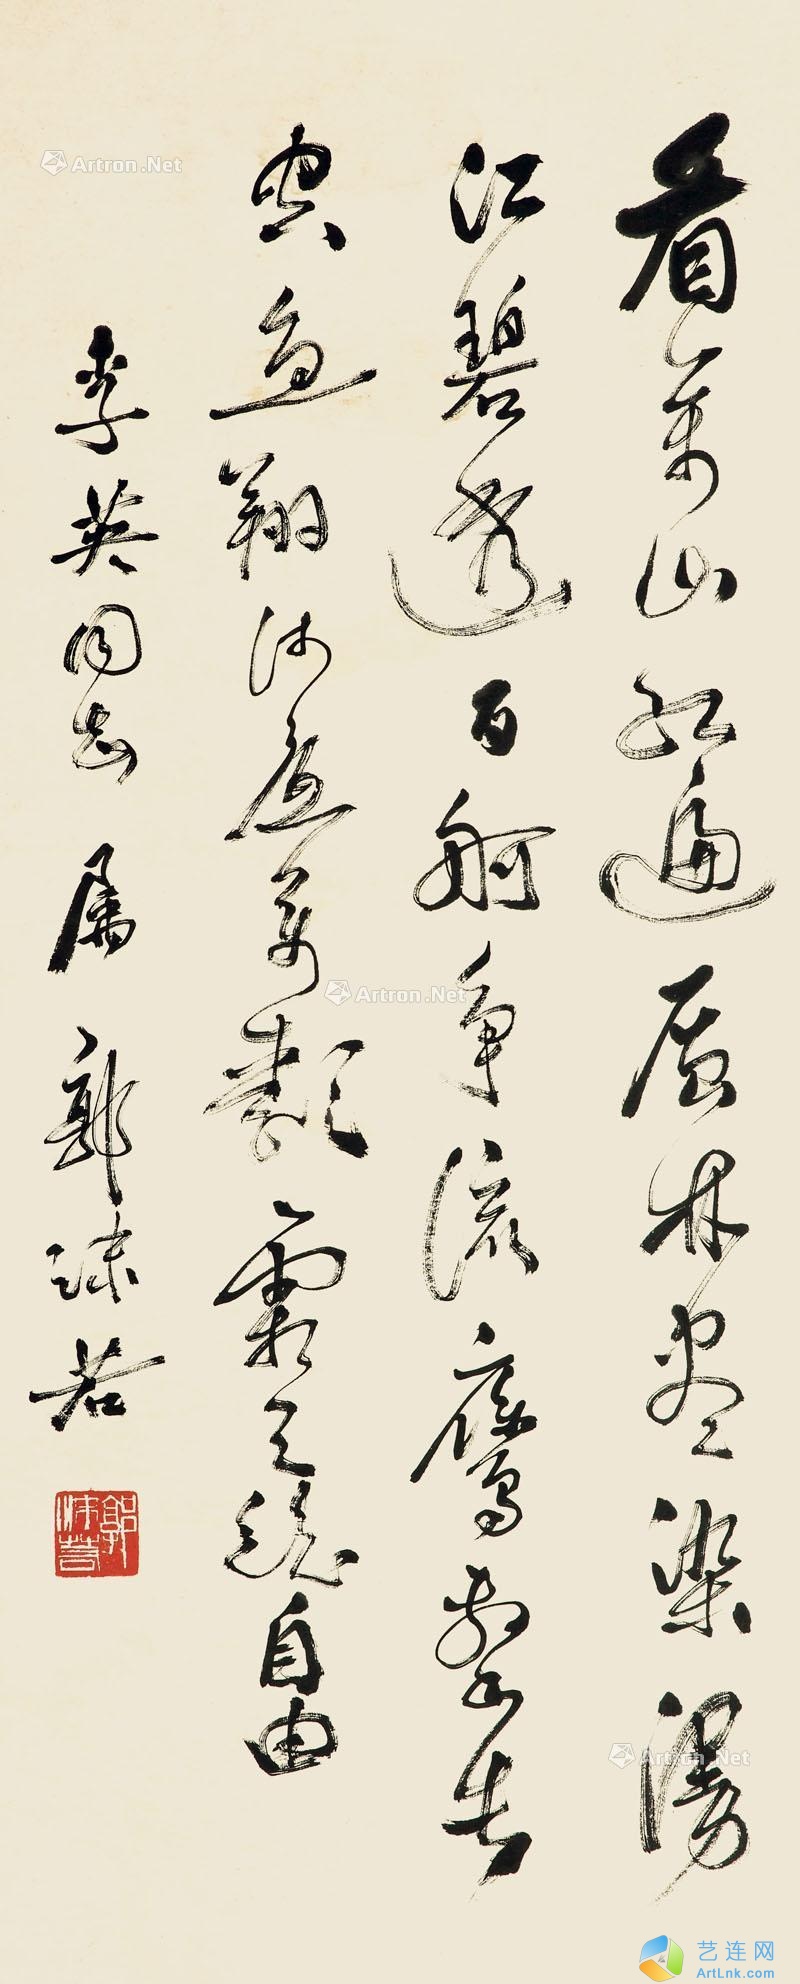 看萬山紅遍層林盡染漫
江碧透百舸爭流鷹擊長
空魚翔淺底萬類霜天競自由
李英同志屬 郭沫若
郭沫若
Artron.Net
Artron.Net
Artron.Net
艺连网
ArtLnk.com